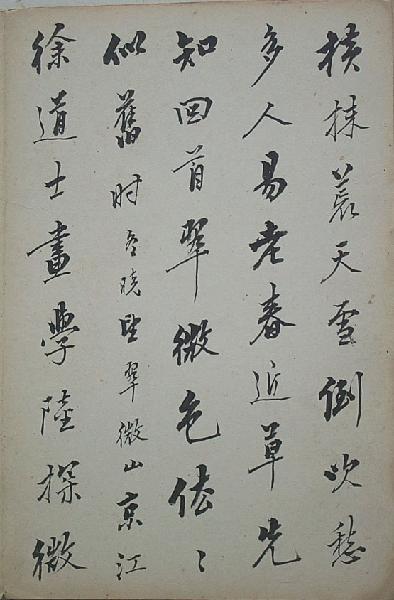 橫抹天雪倒吹愁
多人易老春近草先
知回首翠微色依〻
似舊时冬曉望翠微山京江
徐道士畫學陸探微